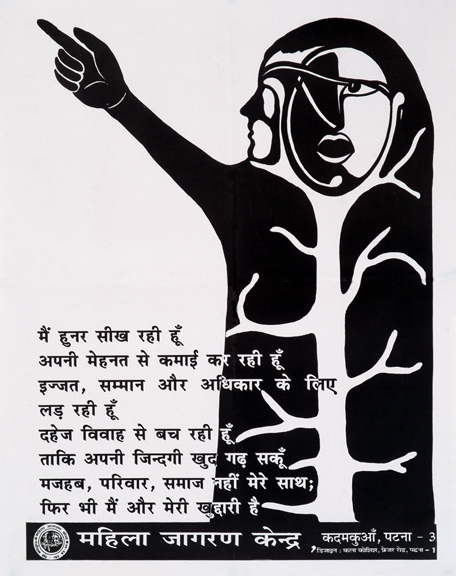 मैं हुनर सीख रही हूँ
अपनी मेहनत से कमाई कर रही हूँ
इज्जत, सम्मान और अधिकार के लिए
लड़ रही हूँ
दहेज विवाह से बच रही हूँ
ताकि अपनी जिन्दगी खुद गढ़ सकूँ
मजहब, परिवार, समाज नहीं मेरे साथ;
फिर भी मैं और मेरी खुद्दारी है
महिला जागरण केन्द्र, कदमकुआँ, पटना - 3
डिजाइन : कला कोशिश, फ्रेजर रोड, पटना - 1